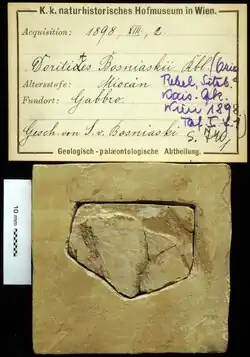 K. k. naturhistorisches Hofmuseum in Wien.
Acquisition: 1898, XIII, 2.
Doritites Bosniaskii Rbl (Orig.
Altersstufe: Miocän
Rebel, Sitzb. d
Fundort: Gabbro.
Kais. Ak.
Wien 1898
Taf I f.
Gesch. von S. v. Bosniaski
S. 740
Geologisch-palæontologische Abtheilung.
10 mm